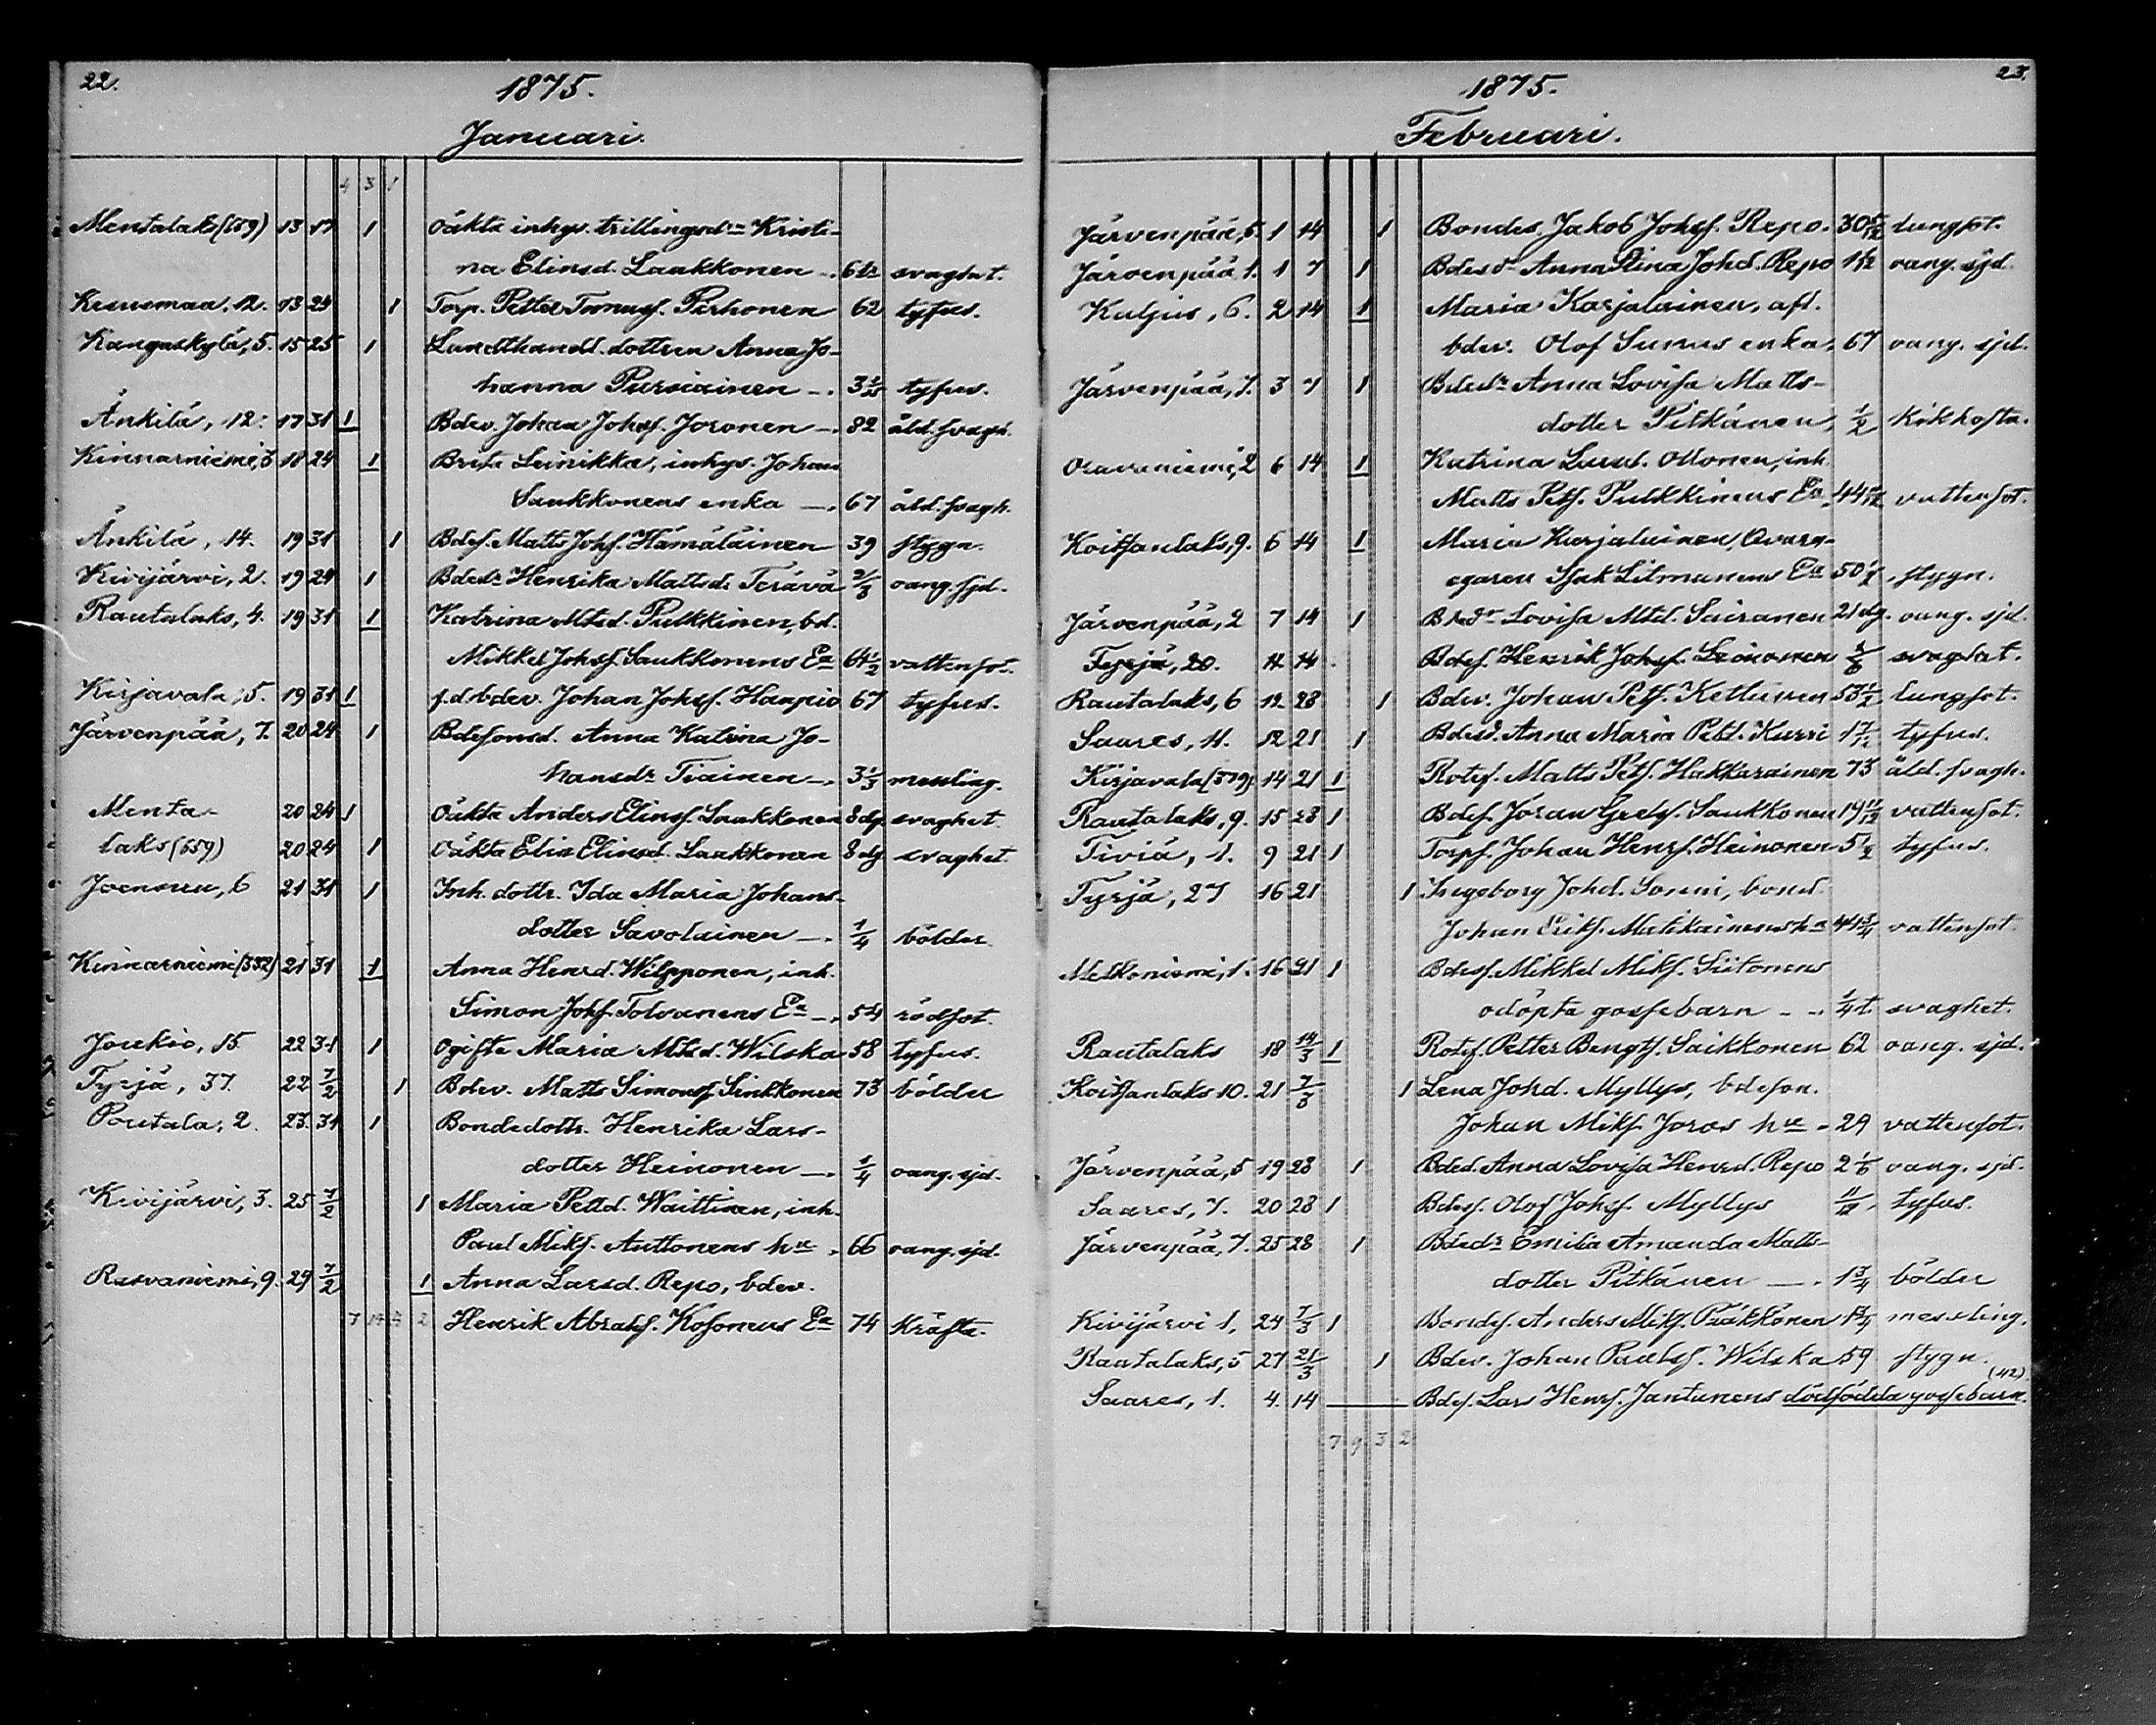 22.
1875.
Januari.
4 3 1
Mentalaks (659) 13 17 1 Oäkta inhys. trillingsd:r Kristi-
na Elinsd. Laakkonen svaghet.
13 24 1 Torp. Petter Tomasf. Pirhonen 62 tyfus.
Kangaskylä, 5. 15 25 1 Landthandl. dottren Anna Jo-
hanna Pursiainen tyfus.
Änkilä, 12. 17 31 1 Bdev. Johan Johsf. Joronen 82 åld. svagh.
Kinnarniemi, 18 24 1 Brita Leinikka, inhys. Johan
Saukkonens enka 67 åld. svagh.
Änkilä, 14. 19 31 1 Bdef. Matts Johf. Hämäläinen 39 stygn.
Kivijärvi, 2. 19 24 1 Bded:r Henrika Mattsd. Terävä 2/3 oang. sjd.
Rautalaks, 4. 19 31 1 Katrina Mtsd. Pulkkinen, bd.
Mikkel Johsf. Saukkonens Ea 64 1/2 vattensot.
Kirjavala, 5. 19 31 1 f.d. bdev. Johan Johsf. Haapio 67 tyfus.
Järvenpää, 7. 20 24 1 Bdesonsd. Anna Katrina Jo-
hansd:r Tiainen 3 1/3 messling.
Menta- 20 24 1 Oäkta Anders Elinsf. Laakkonen 8 dg. svaghet
laks (659) 20 24 1 Oäkta Elin Elinsd. Laakkonen 8 dg svaghet.
Joensuu, 6 21 31 1 Inh. dottr. Ida Maria Johans-
dotter Savolainen 1/4 bölder.
Kinnarniemi (332) 21 31 1 Anna Henrd. Wilpponen, inh.
Simon Johf. Tolvanens Ea 54 rödsot.
Joukio, 15. 22 31 1 Ogifta Maria Mtsd. Wilska 58 tyfus.
Tyrjä, 37. 22 7/2 1 Bdev. Matts Simonsf. Sinkkonen 73 bölder
Poutala, 2. 23. 31 1 Bondedottr. Henrika Lars-
dotter Heinonen 1/4 oang. sjd.
Kivijärvi, 3. 25 7/2 1 Maria Pettd. Waittinen, inh.
Paul Mikf. Anttonens hu 66 oang. sjd.
Rasvaniemi, 9. 29 7/2 1 Anna Larsd. Repo, bdev.
7 14 4 2 Henrik Abrahf. Kosonens Ea 74 Kräfta.
23.
1875.
Februari.
Järvenpää, 5. 1 14 1 Bondes. Jakob Johsf. Repo. 30 5/12 lungsot.
Järvenpää 1. 1 7 1 Bdesd:r Anna Stina Johd. Repo oang. sjd.
Kuljus, 6. 2 14 1 Maria Karjalainen, afl.
bdev. Olof Sunus enka, 67 oang. sjd.
Järvenpää, 7. 3 7 1 Bded:r Anna Lovisa Matts-
dotter Pitkänen, 1/2 kikhosta.
Oravaniemi, 2 6 14 1 Katrina Larsd. Ollonen, inh.
Matts Petf. Pulkkinens Ea vattensot.
Koitsanlaks, 9. 6 14 1 Maria Karjalainen, Qvarn-
egaren Isak Litmanens Ea stygn.
Järvenpää, 2 7 14 1 Bded:r Lovisa Mtd. Sairanen 21 dg. oang. sjd.
Tyrjä, 20. 11 14 Bdef. Henrik Johsf. Leinonen svaghet.
Rautalaks, 6 12 28 1 Bdev. Johan Petf. Kettunen 53 1/2 lungsot.
Saares, 11. 12 21 1 Bdesd. Anna Maria Petd. Kurri 1 7/12 tyfus.
Kirjavala (379) 14 21 1 Rotef. Matts Petf. Hakkarainen 73 åld. svagh.
Rautalaks, 9. 15 28 1 Bdef. Joran Gretf. Saukkonen 19 11/12 vattensot.
Tiviä, 1. 9 21 1 Torpf. Johan Henrf. Heinonen 5 1/2 tyfus.
Tyrjä, 27 16 21 1 Ingeborg Johd. Sonni, bond.
Johan Erikf. Matikainens hu 44 3/4 vattensot.
Melkoniemi, 1. 16 21 1 Bdesf. Mikkel Mikf. Siitonens
odöpta gossebarn 1/4 t. svaghet.
Rautalaks 18 14/3 1 Rotef. Petter Bengtf. Saikkonen 62 oang. sjd.
Koitsanlaks 10. 21 7/3 1 Lena Johd. Myllys, bdeson.
Johan Mikf. Joros hu 29 vattensot.
Järvenpää, 5 19 28 1 Bded. Anna Lovisa Henrd. Repo 2 1/6 oang. sjd.
Saares, 7. 20 28 1 Bdesf. Olof Johsf. Myllys 11/12 tyfus.
Järvenpää, 7. 25 28 1 Bded:r Emilia Amanda Matts-
dotter Pitkänen 1 3/4 bölder
Kivijärvi 1. 24 7/3 1 Bondef. Anders Mikf. Pääkkönen 1 3/4 messling.
Rautalaks, 5 27 21/3 1 Bdev. Johan Paulsf. Wilska 59 stygn.
(42)
Saares, 1. 4. 14 Bdef. Lars Henrf. Jantunens dödfödda gossebarn.
7 9 3 2